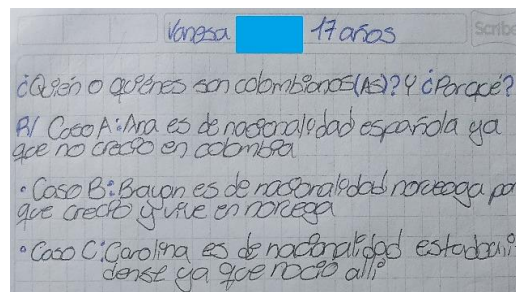 Vanesa 17 años
Scribe
¿Quién o quiénes son colombianos(As)? Y ¿Porqué?
R/ Caso A: Ana es de nacionalidad española ya
que no creció en colombia
• Caso B: Brayan es de nacionalidad noruega por
que creció y vive en noruega
• Caso C: Carolina es de nacionalidad estadouni
dense ya que nació allí